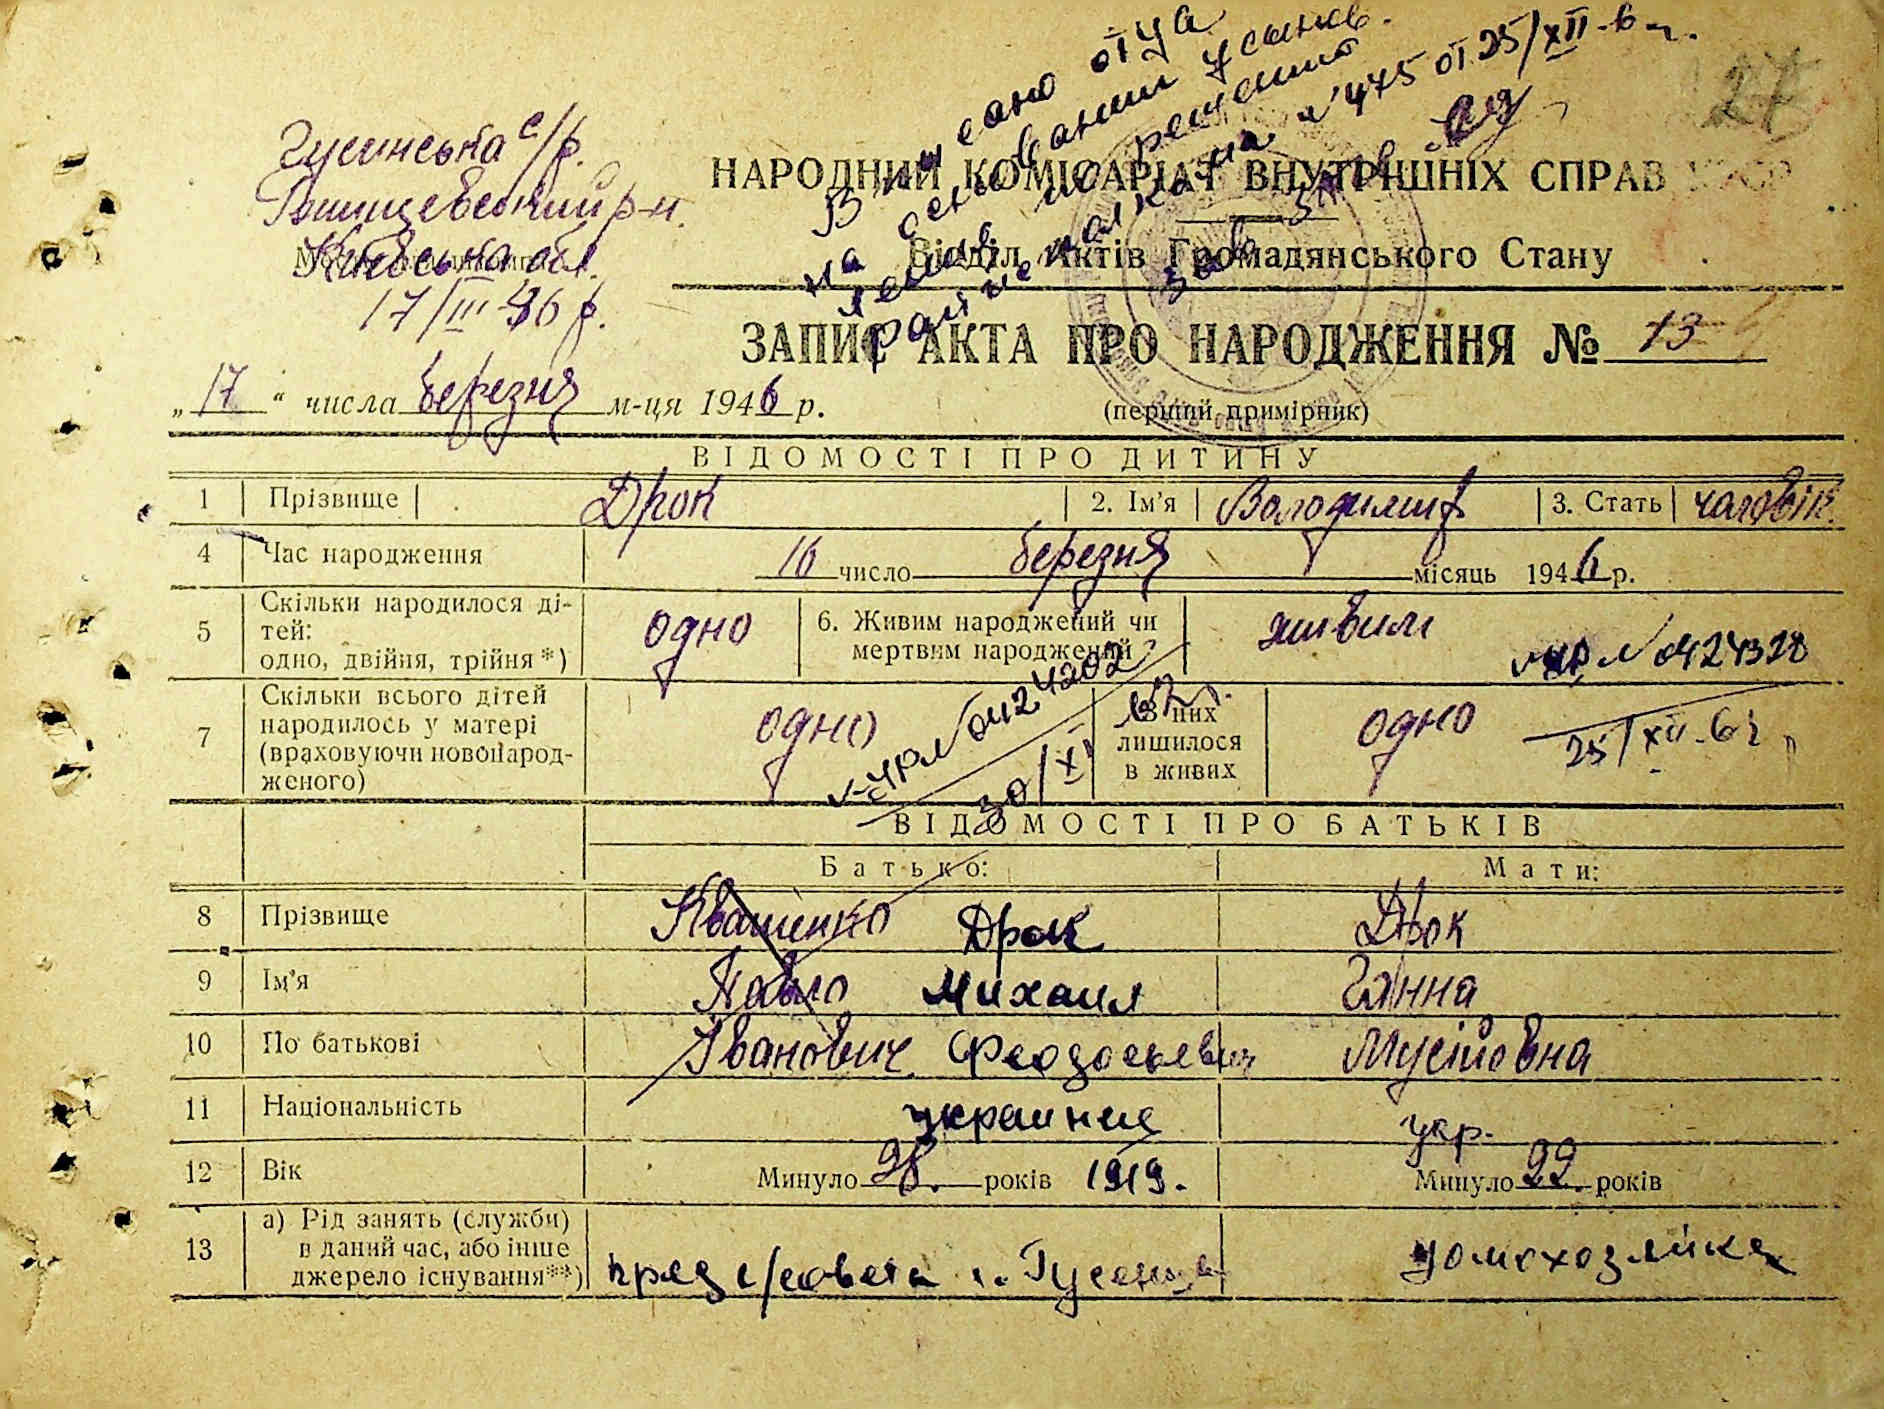 27
отца
на основании усынов.
решения
№ 475 от 25/XII-6 г.
Гусинська с/р.
р-н.
Київська обл.
17/III 46 р.
НАРОДНИЙ КОМІСАРІАТ ВНУТРІШНІХ СПРАВ УРСР
Відділ Актів Громадянського Стану
ЗАПИС АКТА ПРО НАРОДЖЕННЯ № 13
„17“ числа березня м-ця 1946 р.
(перший примірник)
ВІДОМОСТІ ПРО ДИТИНУ
1 Прізвище Дрок 2. Ім'я Володимир 3. Стать чоловік.
4 Час народження 16 число березня місяць 1946 р.
5 Скільки народилося ді-
тей:
одно, двійня, трійня*) одно 6. Живим народжений чи
мертвим народжений живим
№ 0424328
25/XII-6
7 Скільки всього дітей
народилось у матері
(враховуючи новонарод-
женого) одно З них
лишилося
в живих одно
№ 0424202
30/XI
ВІДОМОСТІ ПРО БАТЬКІВ
Батько: Мати:
8 Прізвище Квашенко Дрок Дрок
9 Ім'я Павло Михаил Ганна
10 По батькові Іванович Феодосьевич Мусіївна
11 Національність украинец укр.
12 Вік Минуло 28. років 1919. Минуло 22. років
13 а) Рід занять (служби)
в даний час, або інше
джерело існування**) пред с/совета домохозяйка